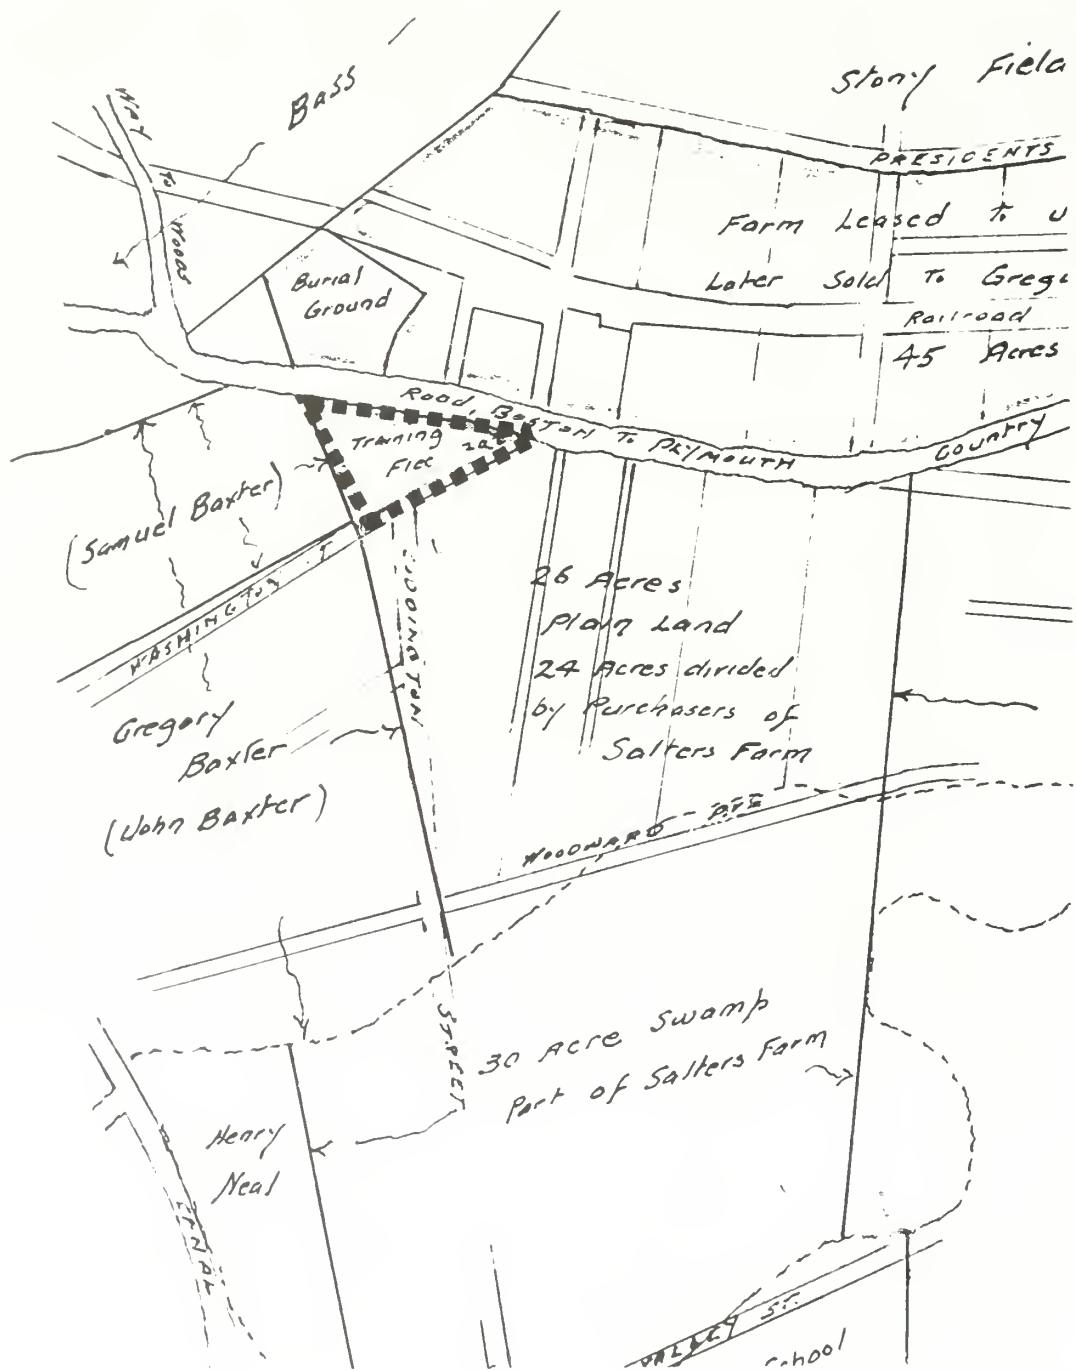 Bass
Stony Field
WAY To WOODS
PRESIDENTS
Farm Leased to
Later Sold To
Burial
Ground
Railroad
45 Acres
Road, BOSTON TO PLYMOUTH
COUNTRY
Training
(Samuel Baxter)
WASHINGTON
CODDINGTON
STREET
26 Acres
Plain Land
24 Acres divided
by Purchasers of
Salters Farm
Gregory
Baxter
(John Baxter)
WOODWARD AVE
30 Acre Swamp
Part of Salters Farm
Henry
Neal
CANAL
VALLEY ST.